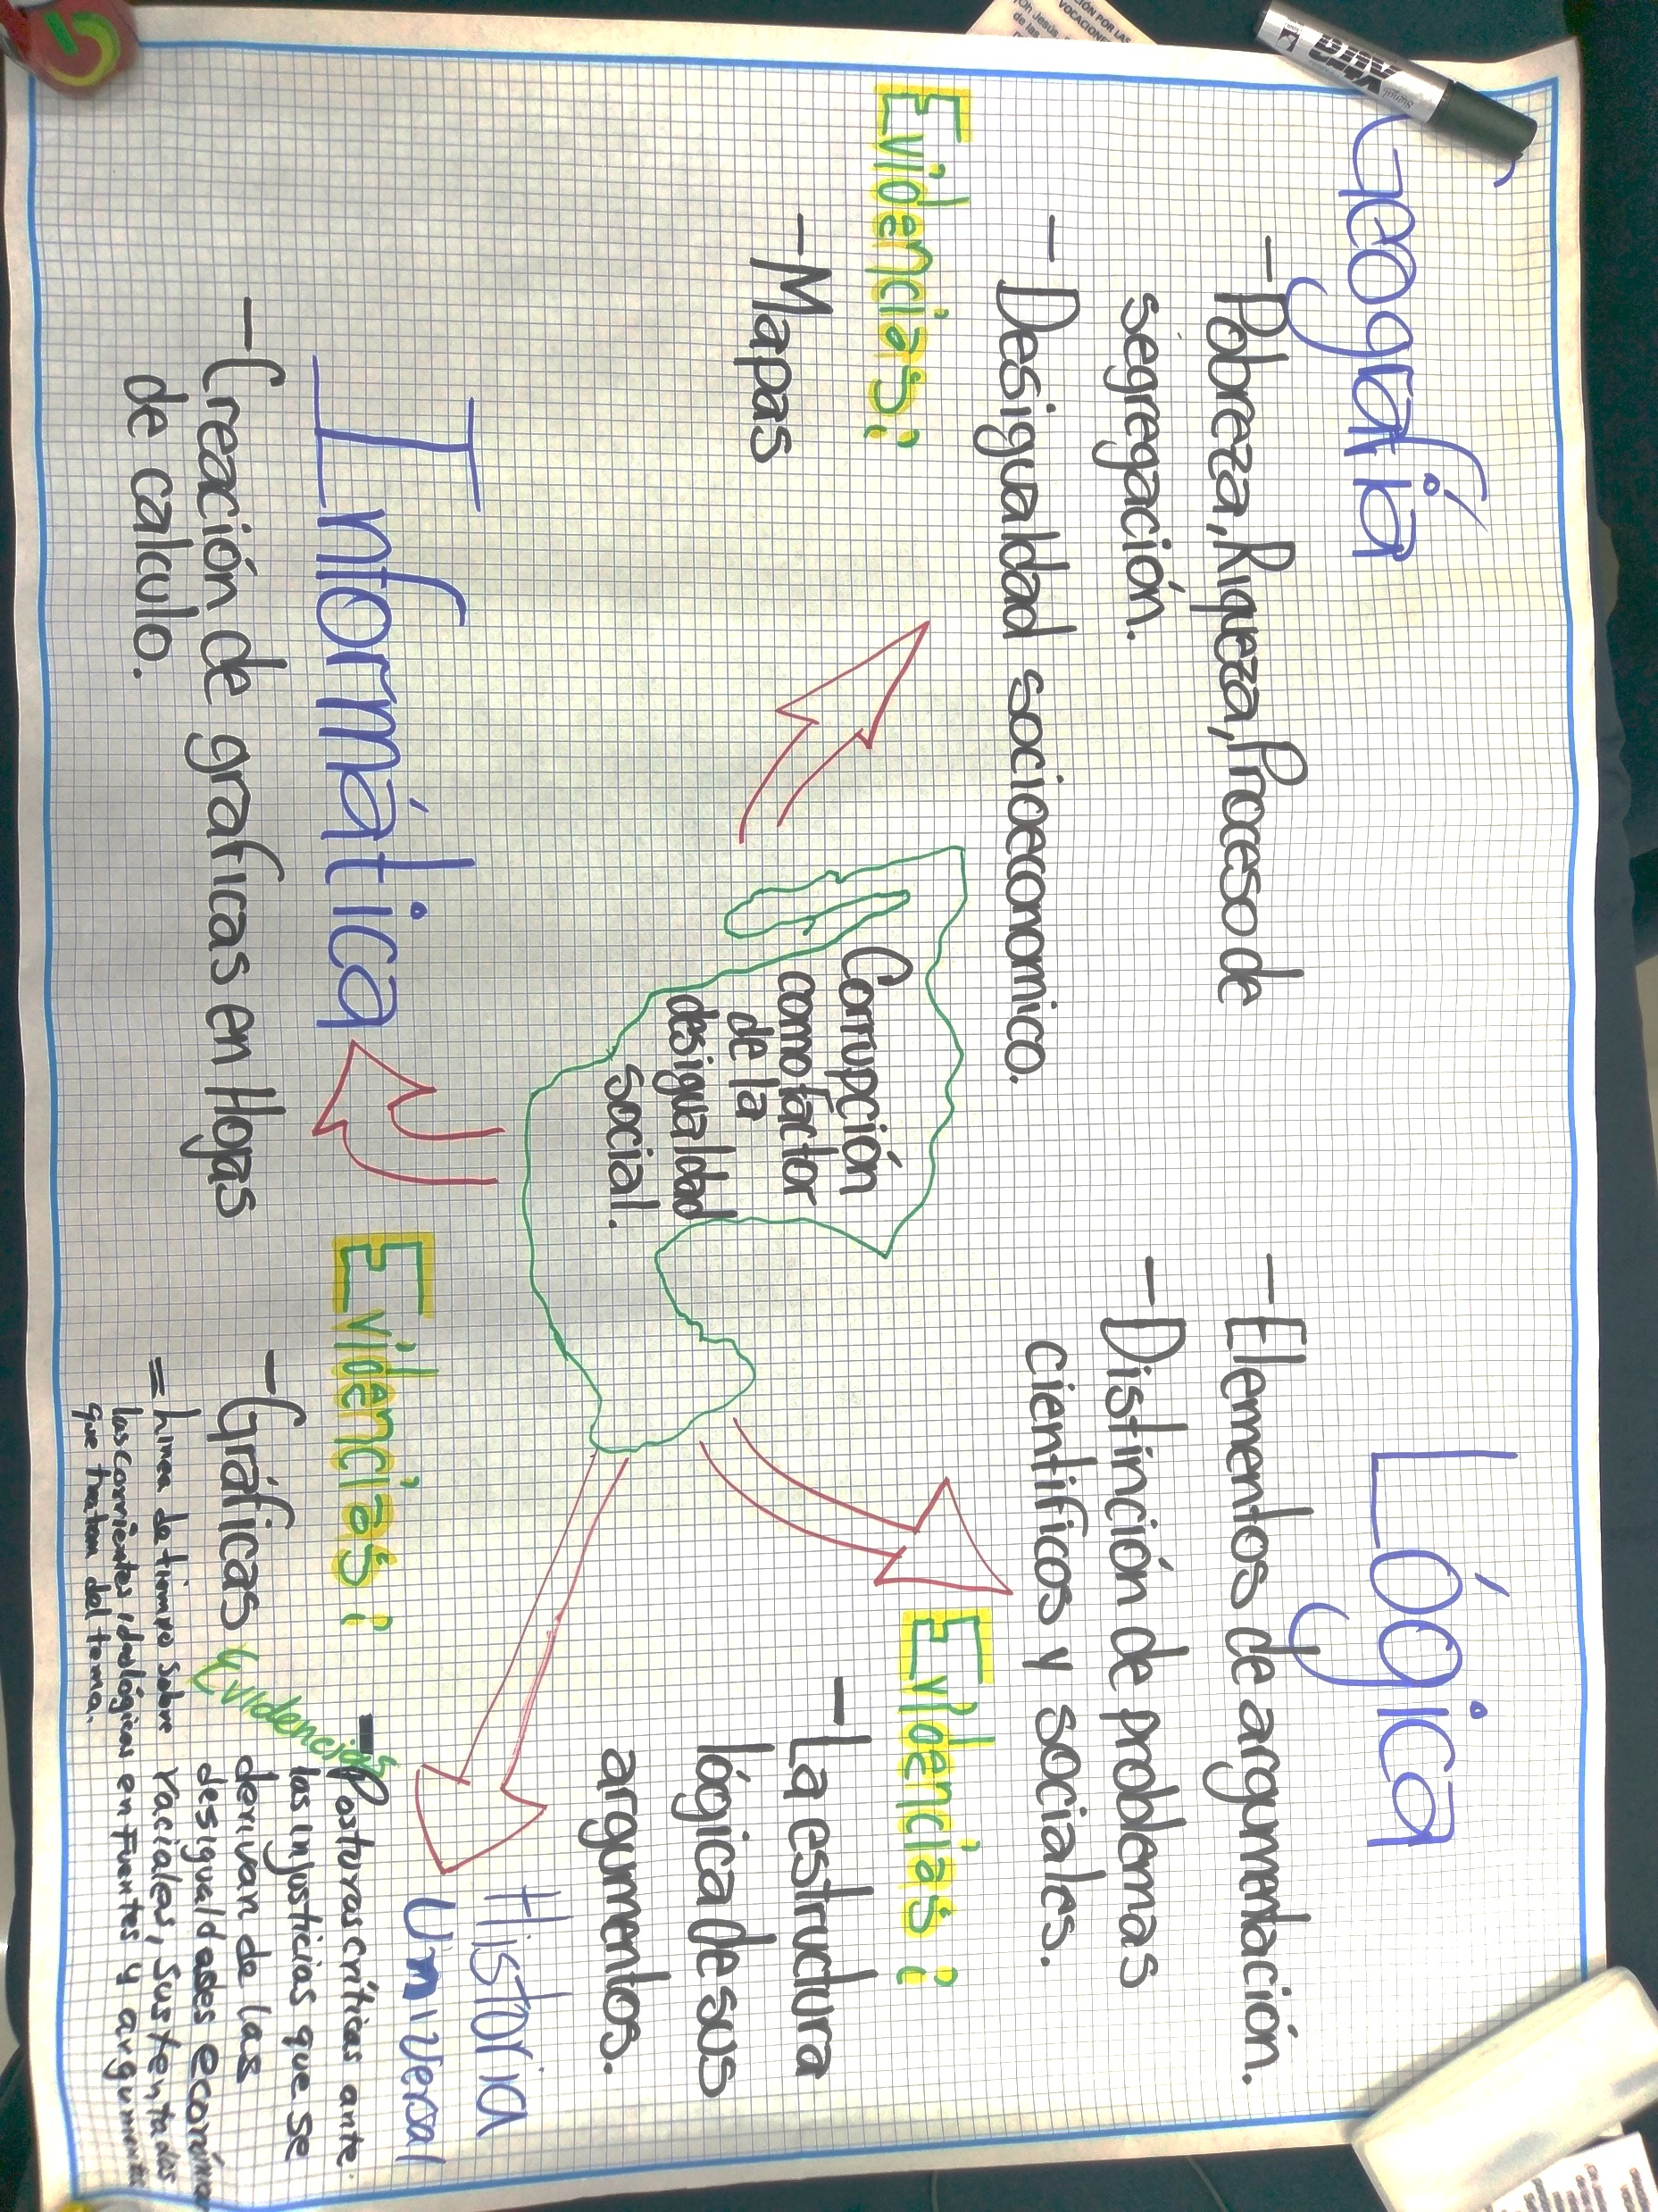 Geografía
-Pobreza, Riqueza, Proceso de
segregación.
- Desigualdad socioeconomico.
Evidencias:
-Mapas
Lógica
-Elementos de argumentación.
-Distinción de problemas
cientificos y sociales.
Evidencias:
-La estructura
lógica de sus
argumentos.
Corrupción
como factor
de la
desigualdad
social.
Informática
-Creación de graficas en Hojas
de calculo.
Evidencias:
-Gráficas
Historia
Universal
-Posturas críticas ante
las injusticias que se
derivan de las
desigualdades económicas
raciales, sustentadas
en Fuentes y argumentos
Evidencias
= Linea de tiempo sobre
las corrientes idológicas
que tratan del tema.
ORACIÓN POR LAS
VOCACIONES
¡Oh, Jesús
de las